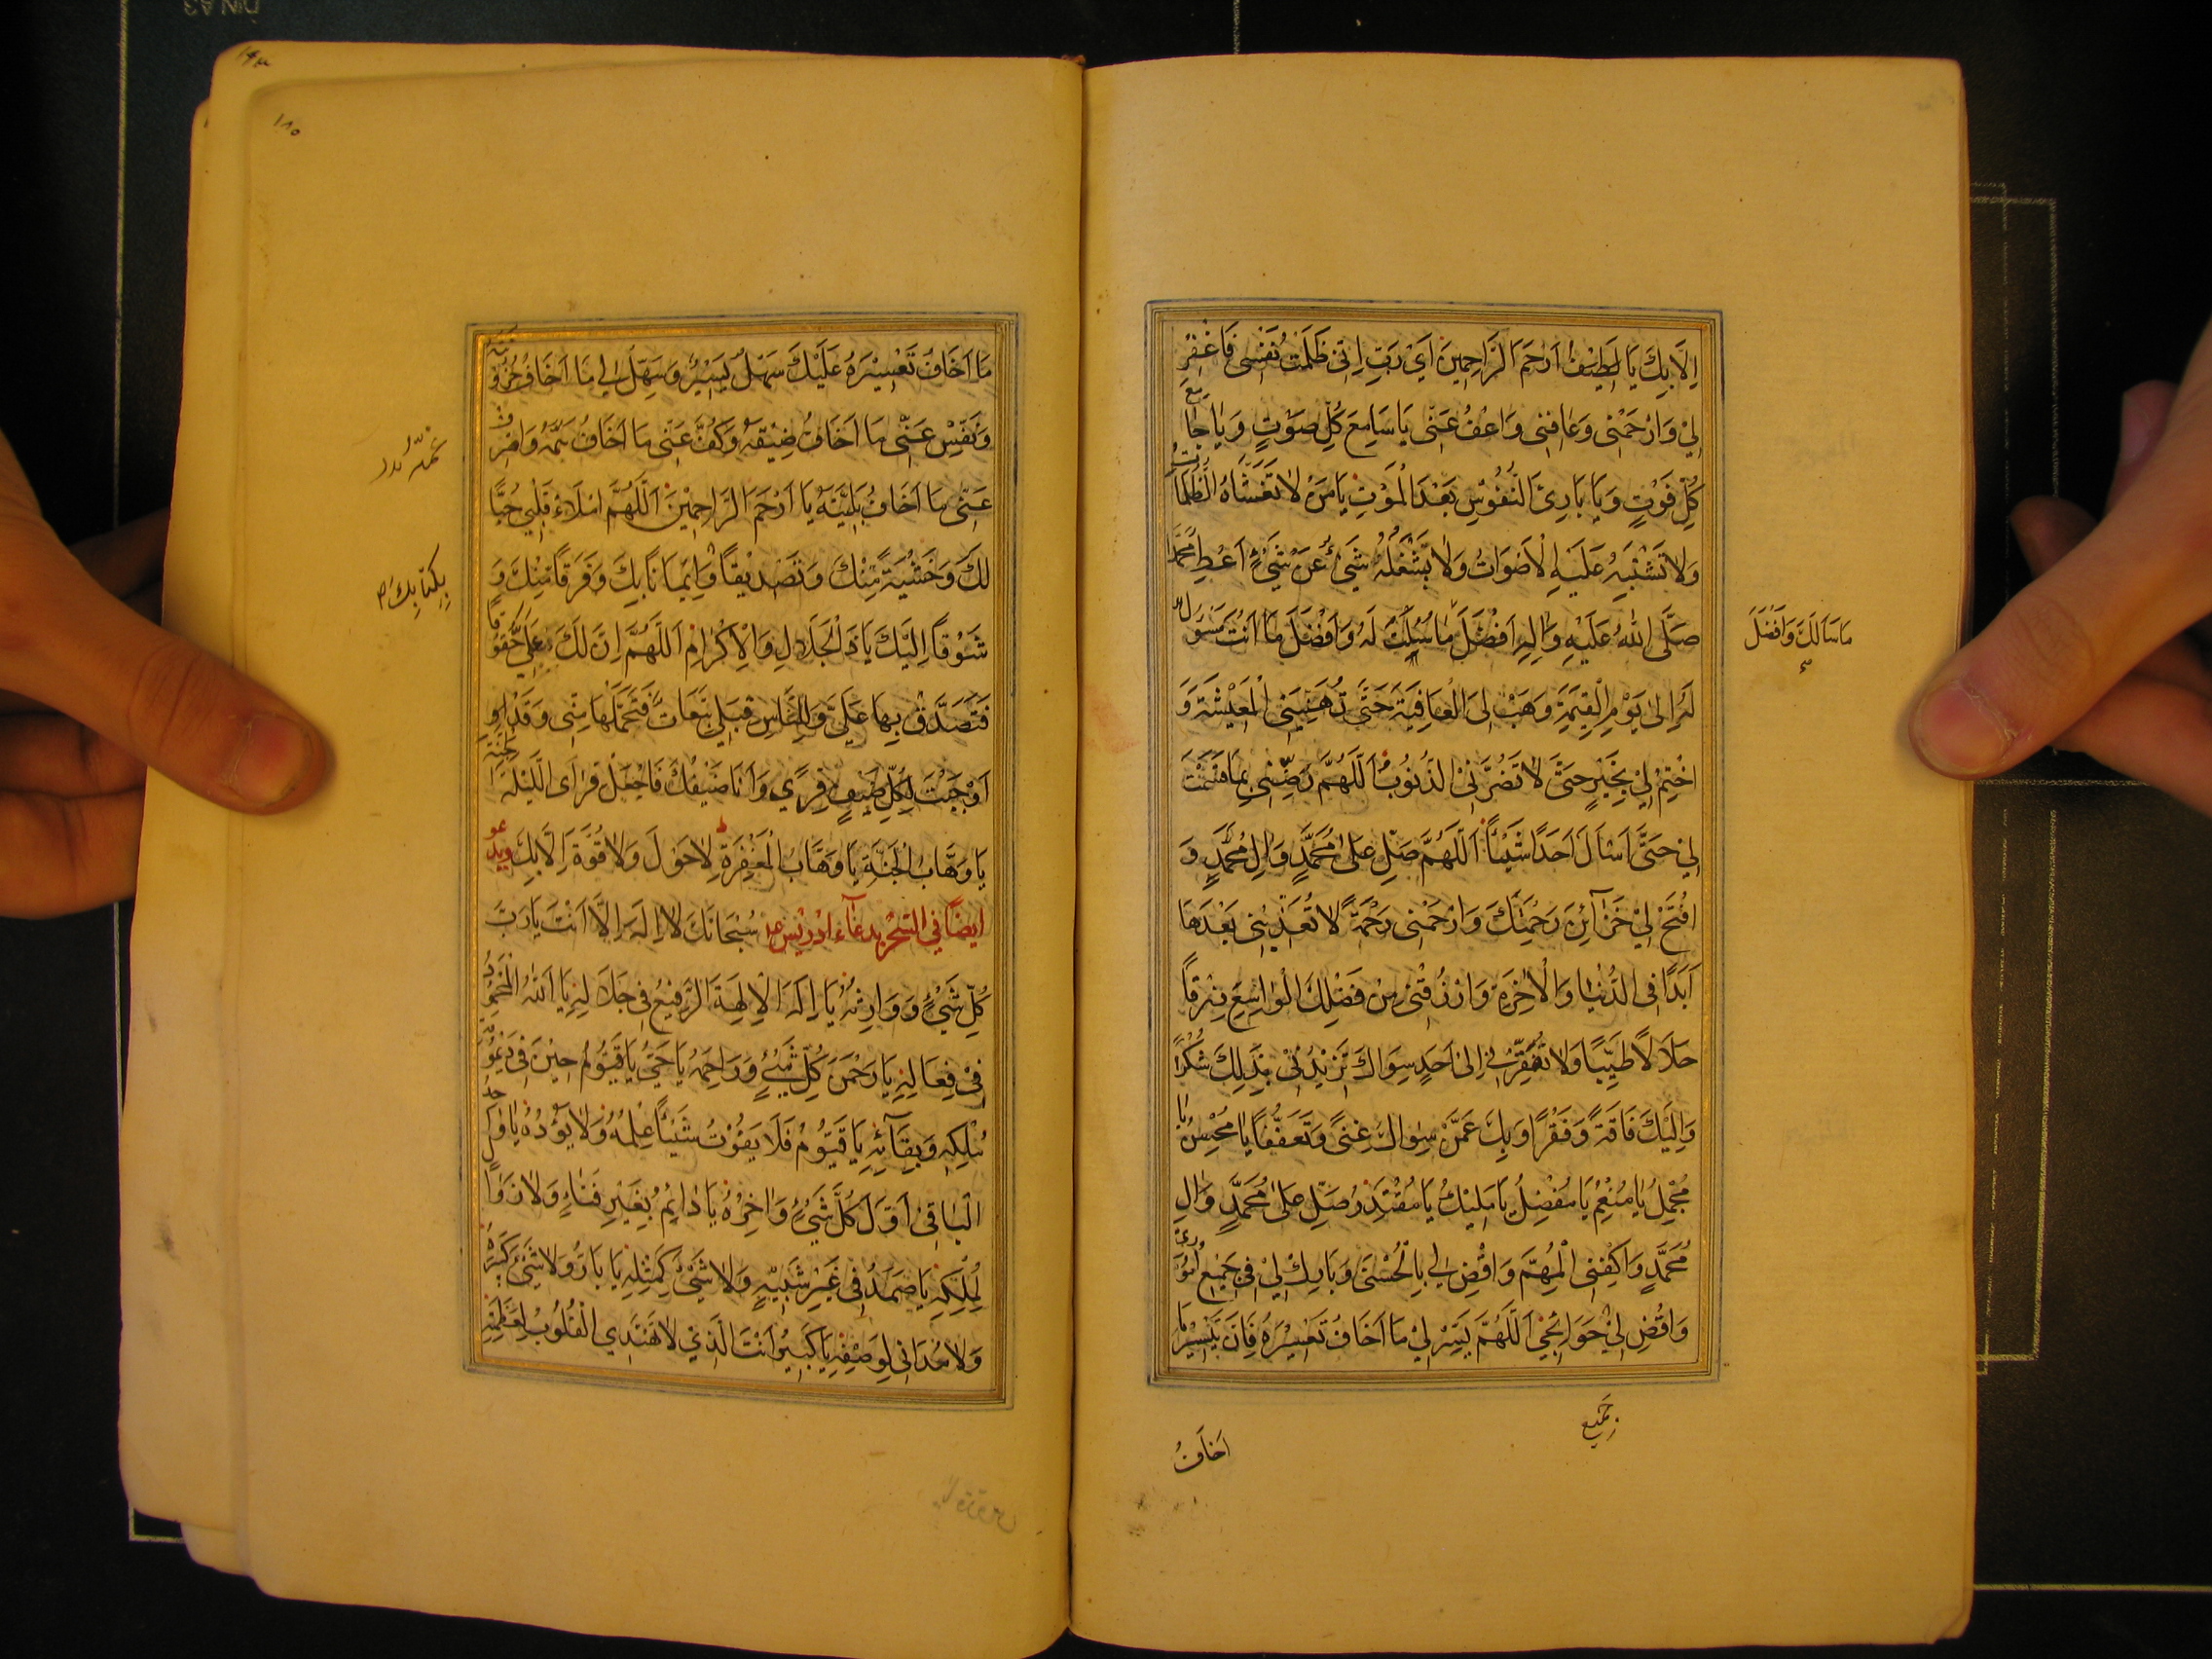 اِلَّا بِكَ يَا لَطِيْفُ اَرْحَمَ الرَّاحِمِينَ اَيْ رَبِّ اِنِّى ظَلَمْتُ نَفْسِى فَاغْفِرْ
لِيْ وَارْحَمْنِى وَعَافِنِى وَاعْفُ عَنِّى يَا سَامِعَ كُلِّ صَوْتٍ وَيَا جَامِعَ
كُلِّ فَوْتٍ وَيَا بَارِئَ النُّفُوْسِ بَعْدَ الْمَوْتِ يَا مَنْ لَا تَغْشَاهُ الظُّلُمَاتُ
وَلَا تَشْتَبِهُ عَلَيْهِ الْاَصْوَاتُ وَلَا يَشْغَلُهُ شَىْءٌ عَنْ شَيْءٍ اَعْطِ مُحَمَّدًا
صَلَّى اللّٰهُ عَلَيْهِ وَاٰلِهِ اَفْضَلَ مَا سُئِلْتَ لَهُ وَاَفْضَلَ مَا اَنْتَ مَسْؤُلٌ
مَا سَاَلَكَ وَاَفْضَلَ
لَهُ اِلىٰ يَوْمِ الْقِيٰمَةِ وَهَبْ لِىَ الْعَافِيَةَ حَتّٰى تُهَنِّيَنِى الْمَعِيْشَةَ وَ
اخْتِمْ لِيْ بِخَيْرٍ حَتّٰى لَا تَضُرَّنِى الذُّنُوْبُ اَللّٰهُمَّ رَضِّنِى بِمَا قَسَمْتَ
لِيْ حَتّٰى لَا اَسْاَلَ اَحَدًا شَيْئًا اَللّٰهُمَّ صَلِّ عَلىٰ مُحَمَّدٍ وَاٰلِ مُحَمَّدٍ وَ
افْتَحْ لِيْ خَزَآئِنَ رَحْمَتِكَ وَارْحَمْنِى رَحْمَةً لَا تُعَذِّبُنِى بَعْدَهَا
اَبَدًا فِى الدُّنْيَا وَالْاٰخِرَةِ وَارْزُقْنِى مِنْ فَضْلِكَ الْوَاسِعِ رِزْقًا
حَلَالًا طَيِّبًا وَلَا تُفْقِرُنِى اِلىٰ اَحَدٍ سِوَاكَ تَزِيْدُنِى بِذٰلِكَ شُكْرًا
وَاِلَيْكَ فَاقَةً وَفَقْرًا وَبِكَ عَمَّنْ سِوَاكَ غِنىً وَتَعَفُّفًا يَا مُحْسِنُ يَا
مُجْمِلُ يَا مُنْعِمُ يَا مُفْضِلُ يَا مَلِيْكُ يَا مُقْتَدِرُ صَلِّ عَلىٰ مُحَمَّدٍ وَاٰلِ
مُحَمَّدٍ وَاكْفِنِى الْمُهِمَّ وَاقْضِ لِيْ بِالْحُسْنىٰ وَبَارِكْ لِيْ فِيْ جَمِيْعِ اُمُوْرِىْ
وَاقْضِ لِيْ حَوَائِجِيْ اَللّٰهُمَّ يَسِّرْ لِيْ مَا اَخَافُ تَعْسِيْرَهُ فَاِنَّ تَيْسِيْرَ مَا
جَمِيْعَ
اَخَافُ
١٨٥
مَا اَخَافُ تَعْسِيْرَهُ عَلَيْكَ سَهْلٌ يَسِيْرٌ وَسَهِّلْ لِيْ مَا اَخَافُ حُزُوْنَتَهُ
وَنَفِّسْ عَنِّى مَا اَخَافُ ضِيْقَهُ وَكُفَّ عَنِّى مَا اَخَافُ غَمَّهُ وَاصْرِفْ
عَنِّى مَا اَخَافُ بَلِيَّتَهُ يَا اَرْحَمَ الرَّاحِمِيْنَ اَللّٰهُمَّ امْلَاْ قَلْبِيْ حُبًّا
لَكَ وَخَشْيَةً مِنْكَ وَتَصْدِيْقًا وَاِيْمَانًا بِكَ وَفَرَقًا مِنْكَ وَ
بِكِتَابِكَ
شَوْقًا اِلَيْكَ يَا ذَا الْجَلَالِ وَالْاِكْرَامِ اَللّٰهُمَّ اِنَّ لَكَ عَلَيَّ حُقُوْقًا
فَتَصَدَّقْ بِهَا عَلَيَّ وَلِلنَّاسِ قِبَلِيْ تَبِعَاتٌ فَتَحَمَّلْهَا عَنِّى وَقَدْ
اَوْجَبْتَ لِكُلِّ ضَيْفٍ قِرًى وَاَنَا ضَيْفُكَ فَاجْعَلْ قِرَاىَ اللَّيْلَةَ الْجَنَّةَ
يَا وَهَّابَ الْجَنَّةِ يَا وَهَّابَ الْمَغْفِرَةِ لَا حَوْلَ وَلَا قُوَّةَ اِلَّا بِكَ ويدعو
ايضًا في السَّحَرِ بِدُعَآءِ اِدْرِيْسَ سُبْحَانَكَ لَا اِلٰهَ اِلَّا اَنْتَ يَا رَبَّ
كُلِّ شَيْءٍ وَوَارِثَهُ يَا اِلٰهَ الْاٰلِهَةِ الرَّفِيْعُ فِى جَلَالِهِ يَا اَللّٰهُ الْمَحْمُوْدُ
فِىْ فِعَالِهِ يَا رَحْمٰنَ كُلِّ شَيْءٍ وَرَاحِمَهُ يَا حَيُّ يَا قَيُّوْمُ حِيْنَ فِىْ دَيْمُوْمَةِ
مُلْكِهِ وَبَقَآئِهِ يَا قَيُّوْمُ فَلَا يَفُوْتُ شَيْئًا عِلْمُهُ وَلَا يَؤُدُهُ يَا وَاحِدُ
الْبَاقِىْ اَوَّلَ كُلِّ شَيْءٍ وَاٰخِرَهُ يَا دَائِمُ بِغَيْرِ فَنَاءٍ وَلَا زَوَالَ
لِمُلْكِهِ يَا صَمَدُ فِى غَيْرِ شَبِيْهٍ وَلَا شَيْءَ كَمِثْلِهِ يَا بَارُّ وَلَا شَيْءَ
وَلَا مُدَانِىَ لِوَصْفِهِ يَا كَبِيْرُ اَنْتَ الَّذِيْ لَا تَهْتَدِي الْقُلُوْبُ لِعَظَمَتِهِ